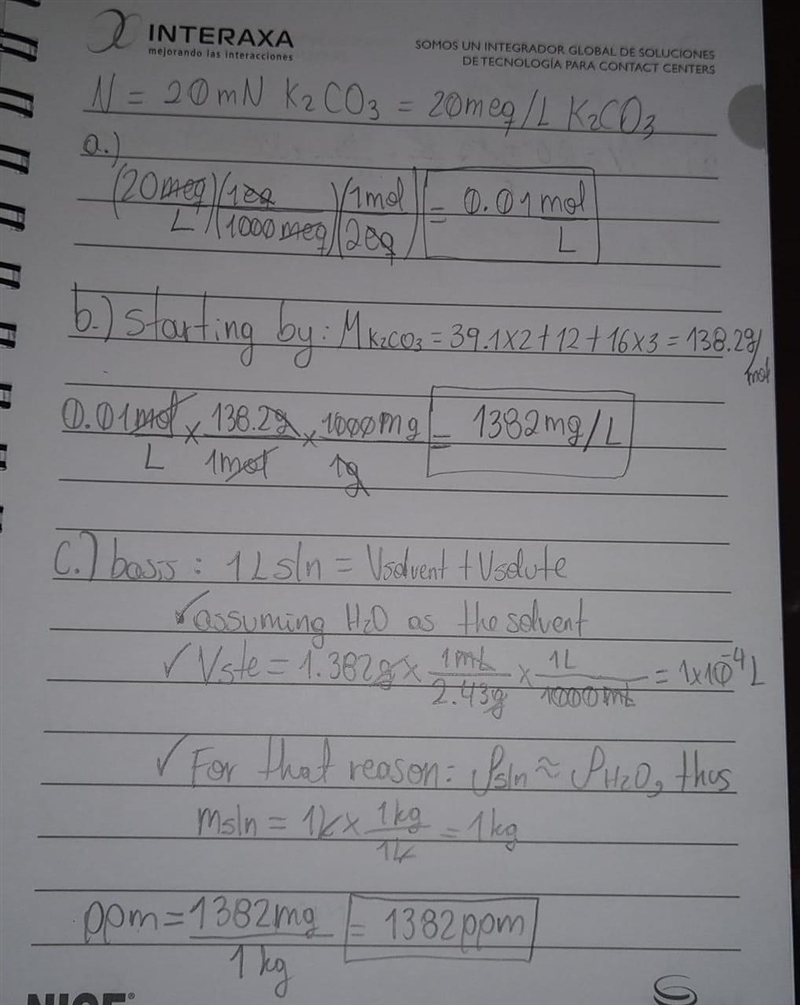 INTERAXA
mejorando las interacciones
SOMOS UN INTEGRADOR GLOBAL DE SOLUCIONES
DE TECNOLOGÍA PARA CONTACT CENTERS
N = 20mN K2CO3 = 20meq/L K2CO3
a.)
(20meq/L)(1eq/1000meq)(1mol/2eq) = 0.01 mol/L
b.) Starting by: M K2CO3 = 39.1x2+12+16x3 = 138.2g/mol
0.01mol/L x 138.2g/1mol x 1000mg/1g = 1382mg/L
C.) basis: 1L sln = Vsolvent + Vsolute
✓assuming H2O as the solvent
✓ Vste = 1.382g x 1mL/2.43g x 1L/1000mL = 1x10^-4 L
✓ For that reason: ρsln ≈ ρH2O, thus
msln = 1L x 1kg/1L = 1kg
ppm = 1382mg/1kg = 1382ppm
NICE®